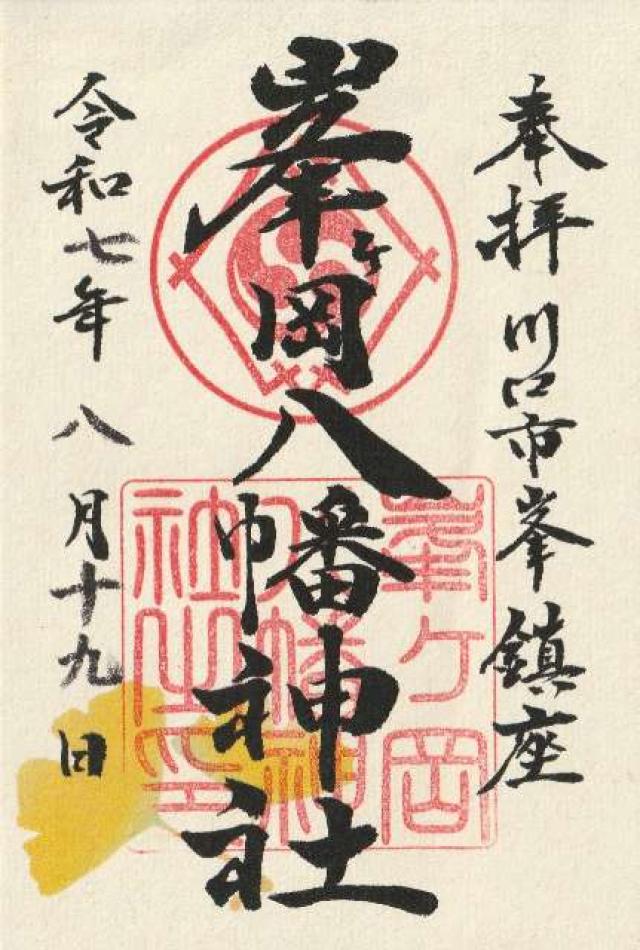 奉拝 川口市峯鎮座
峯ヶ岡八幡神社
峯ヶ岡八幡神社之印
令和七年 八月十九日